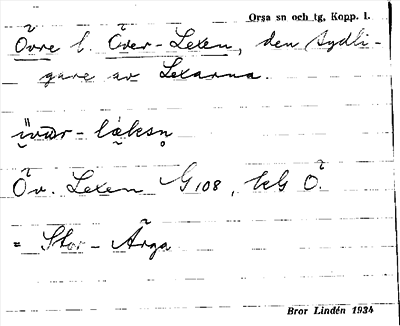 Orsa sn och tg, Kopp. l.
Övre l. Över-Lexen, den sydli-
gare av Lexarna.
Öv. Lexen G 108, lels Ö.
= Stor-Ärga
Bror Lindén 1934